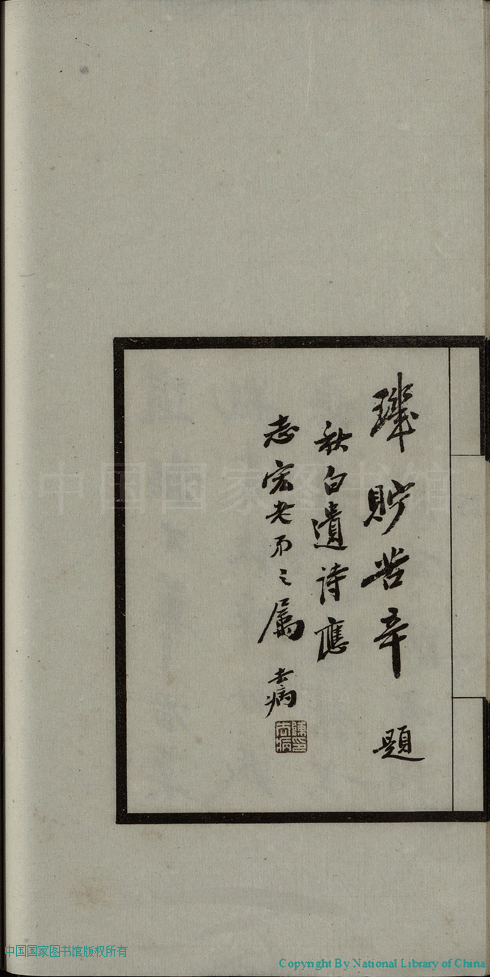 璣貯苦辛 題
秋白遺詩應
志宏老弟之属 去病
陳印去病
中国国家图书馆
中国国家图书馆版权所有
Copyright By National Library of China